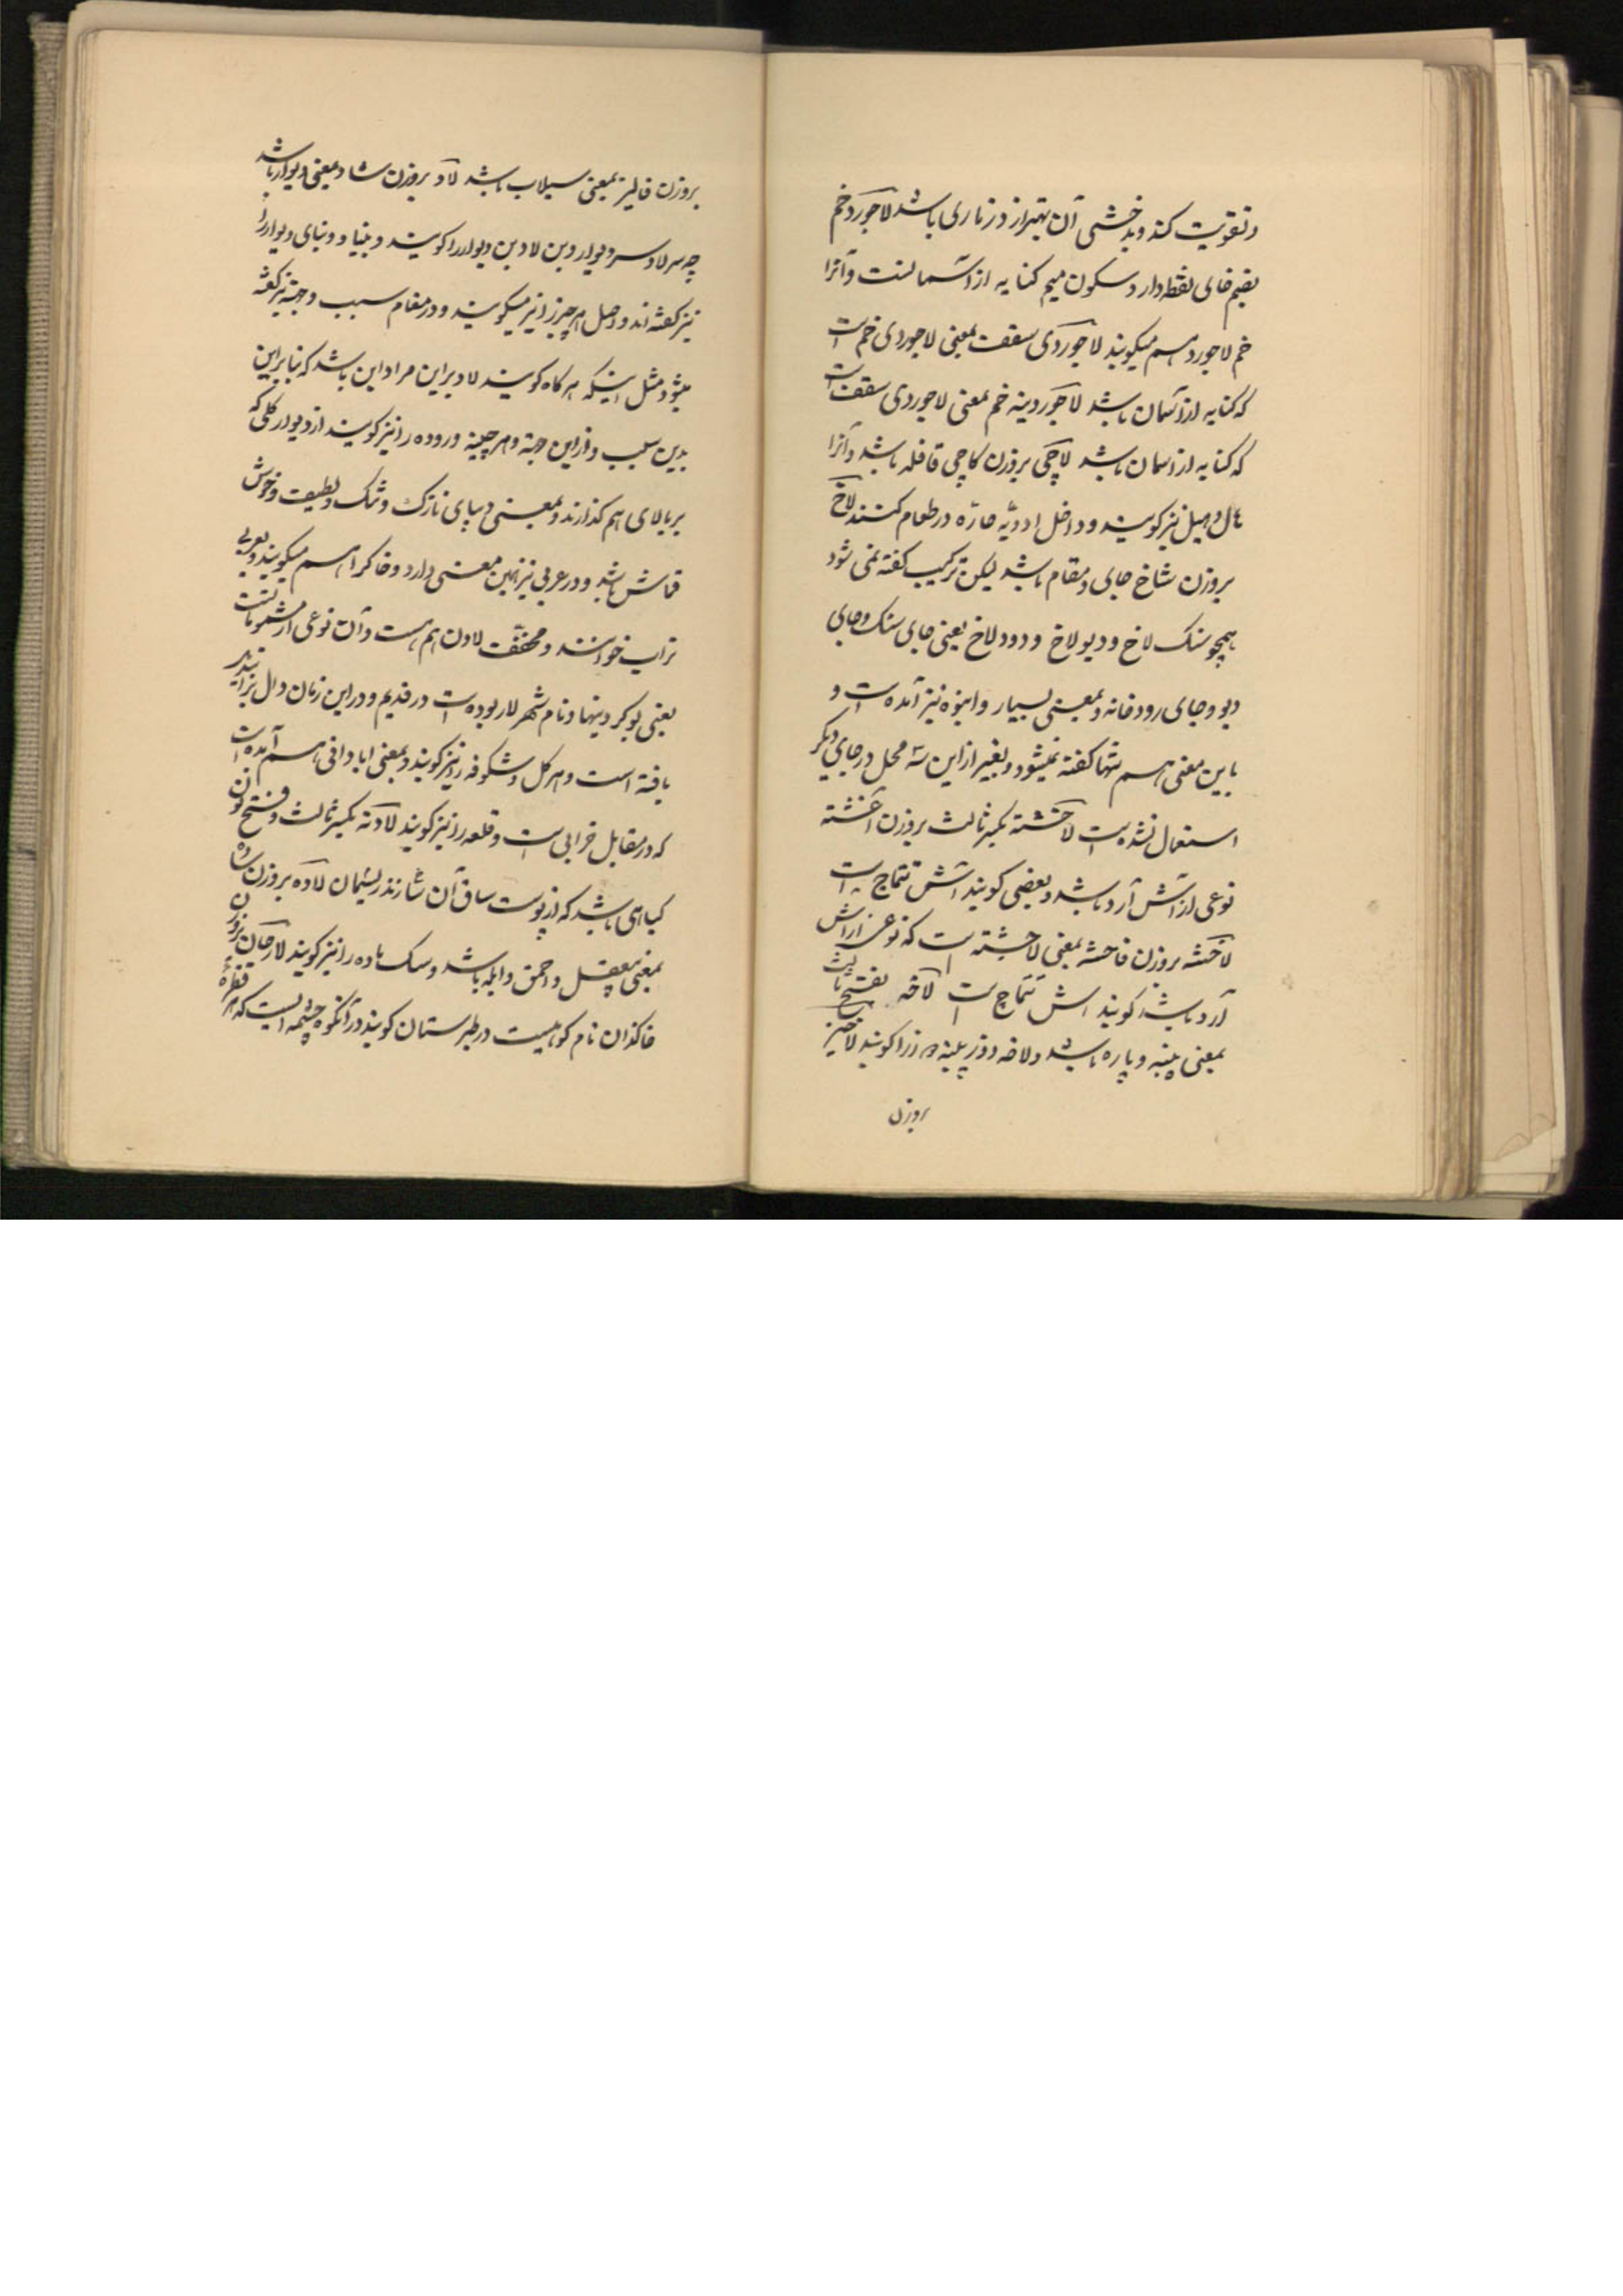 و تقویت کند و بدخشی آن بهتر از دزماری باشد لاجورد خم
بضم خای نقطه‌دار و سکون میم کنایه از آسمانست و آنرا
خم لاجورد هم میگویند لاجوردی سقف بمعنی لاجوردی خم است
که کنایه از آسمان باشد لاجوردینه خم بمعنی لاجوردی سقف است
که کنایه از آسمان باشد لاچی بروزن کاچی قاقله باشد و آنرا
هال و هیل نیز گویند و داخل ادویه حارّه در طعام کنند لاخ
بروزن شاخ جای و مقام باشد لیکن بترکیب گفته نمی شود
همچو سنک لاخ و دیو لاخ و رود لاخ یعنی جای سنک و جای
دیو و جای رودخانه و بمعنی بسیار و انبوه نیز آمده است و
باین معنی هم تنها گفته نمیشود و بغیر از این سه محل در جای دیگر
استعمال نشده است لاخشته بکسر ثالث بروزن آغشته
نوعی از آش آرد باشد و بعضی گویند آش تتماج است
لاخشه بروزن فاحشه بمعنی لاخشته است که نوعی از آش
آرد باشد گویند آش تتماج است لاخه بفتح ثالث
بمعنی پینه و پاره باشد و لاخه دوز پینه دوز را گویند لاخیز
بروزن
بروزن فالیز بمعنی سیلاب باشد لاد بروزن شاد بمعنی دیوار باشد
چه سر لاد سر دیوار و بن لاد بن دیوار را گویند و بنیاد و بنای دیوار را
نیز گفته اند و اصل هر چیز را نیز میگویند و در مقام سبب و جهة نیز گفته
میشود مثل اینکه هر گاه گویند لاد بر این مراد این باشد که بنابراین
بدین سبب و از این جهة و هر چینه و رده را نیز گویند از دیوار گلی که
بر بالای هم گذارند و بمعنی دیبای نازک و تنک و لطیف و خوش
قماش باشد و در عربی نیز همین معنی دارد و خاک را هم میگویند و بعربی
تراب خوانند و مخفف لادن هم هست و آن نوعی از مشمومات است
یعنی بو کردنیها و نام شهر لار بوده است در قدیم و در این زمان دال برا تبدیل
یافته است و هر گل و شکوفه را نیز گویند و بمعنی ابادانی هم آمده است
که در مقابل خرابی است و قلعه را نیز گویند لادنه بکسر ثالث و فتح نون
گیاهی باشد که از پوست ساق آن سازند ریسمان لاده بروزن ساده
بمعنی بیعقل و احمق و ابله باشد و سک ماده را نیز گویند لارجان بروزن
خاکدان نام کوهیست در طبرستان گویند در آنکوه چشمه ایست که هر قطرهٔ